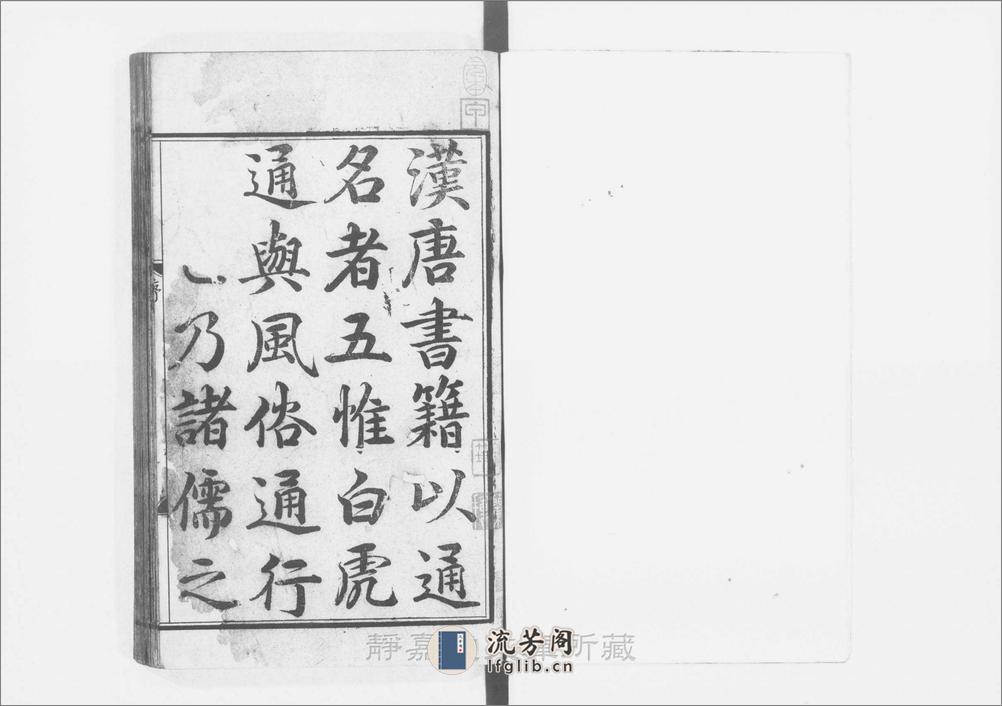 漢唐書籍以通
名者五惟白虎
通與風俗通行
乃諸儒之
序
靜嘉 所藏
流芳阁
lfglib.cn